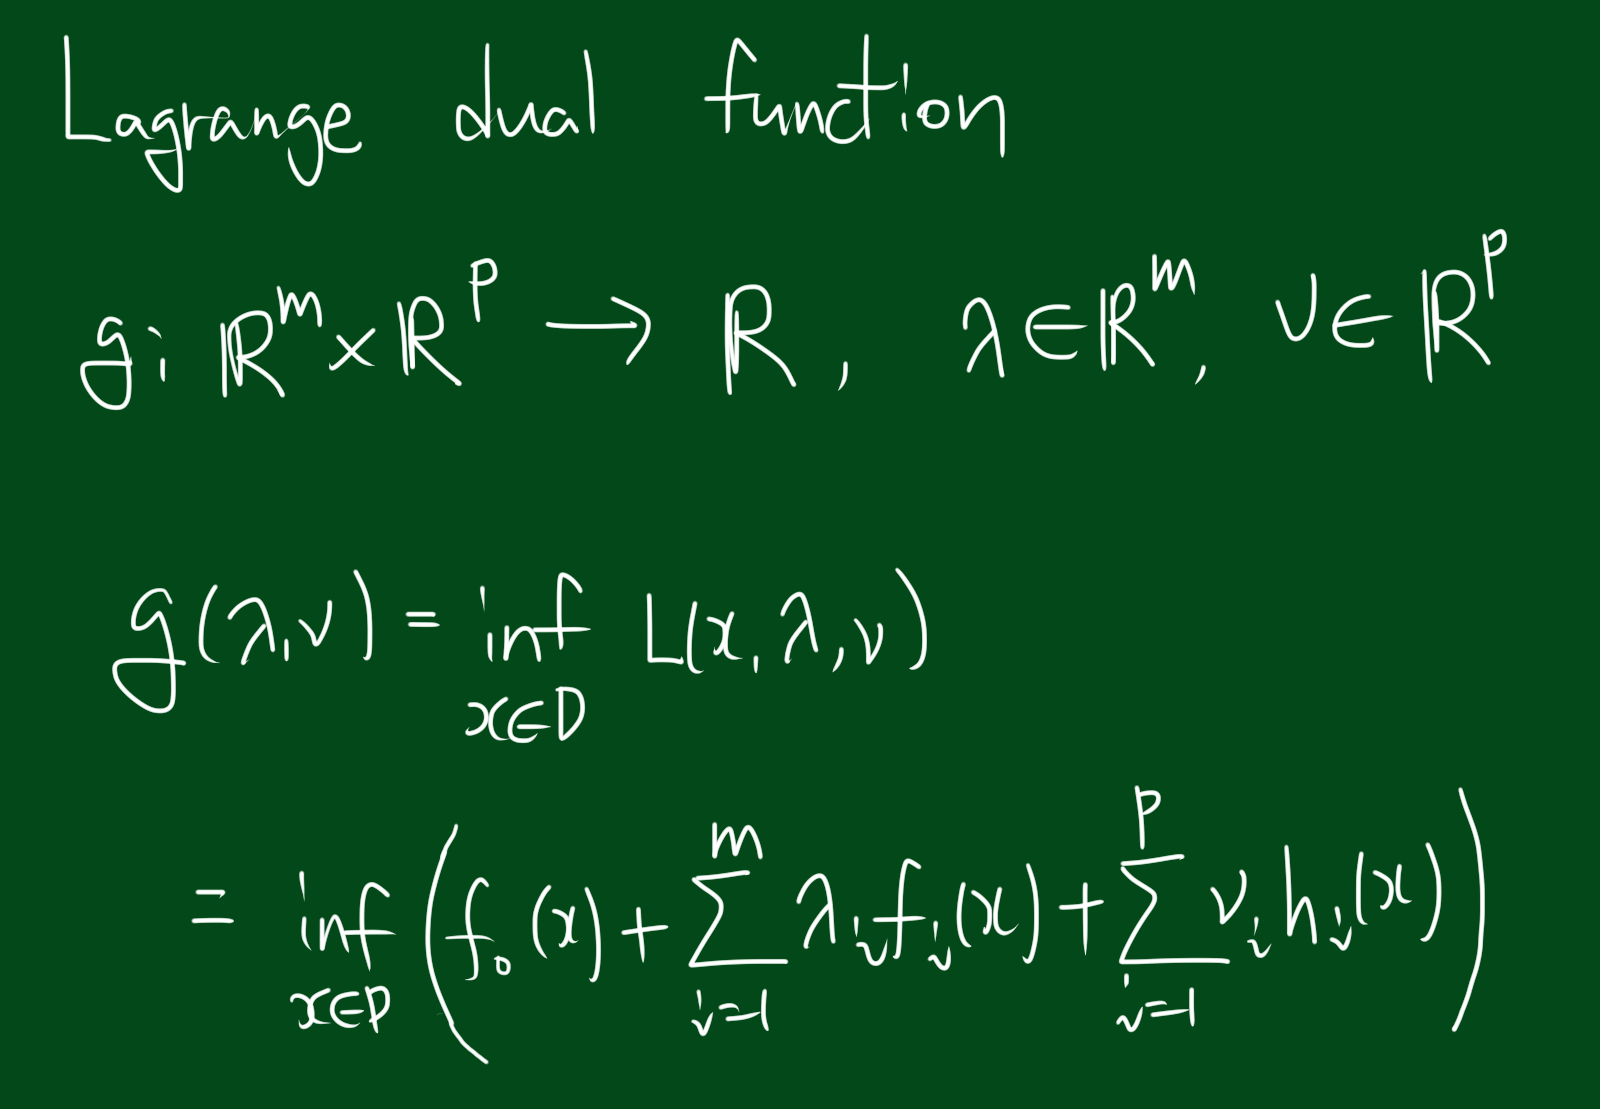 Lagrange dual function
g: ℝ^m × ℝ^p → ℝ, λ ∈ ℝ^m, ν ∈ ℝ^p
g(λ, ν) = inf_{x∈D} L(x, λ, ν)
= inf_{x∈D} (f_0(x) + ∑_{i=1}^{m} λ_i f_i(x) + ∑_{i=1}^{p} ν_i h_i(x))